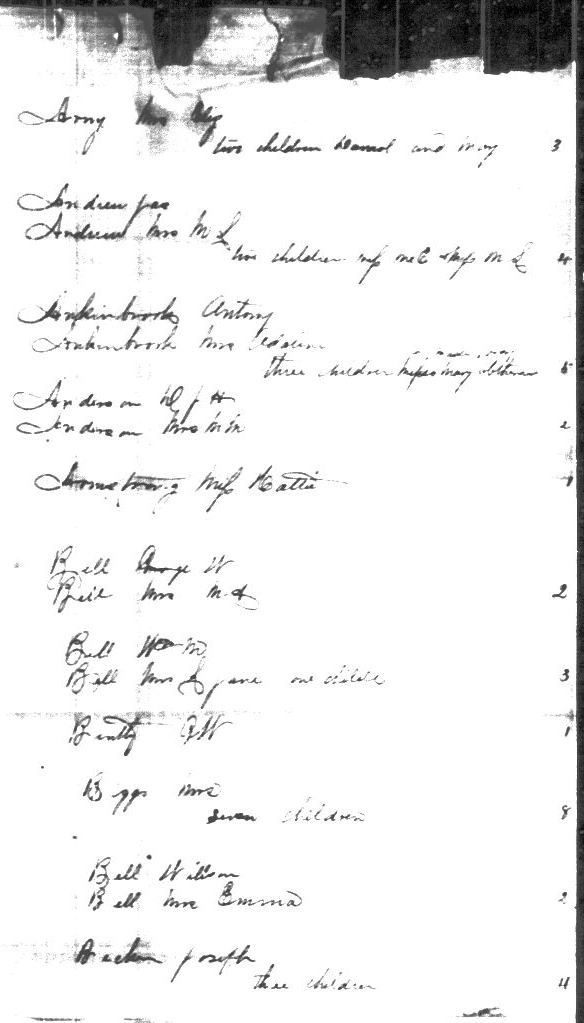 Army Mrs Eliz
two children Daniel and May 3
Andrew Jas
Andrew Mrs M L
two children Miss M E & Miss M L 4
Ankinbrook Antony
Ankinbrook Mrs Adaline
three children Mary 5
Anderson J H
Anderson Mrs M M 2
Armstrong Miss Hattie 1
Bell George W
Bell Mrs M A 2
Bell W M
Bell Mrs L Jane one child 3
Beatty G W 1
Biggs Mrs
seven children 8
Bell Willson
Bell Mrs Emma 2
Joseph
three children 4